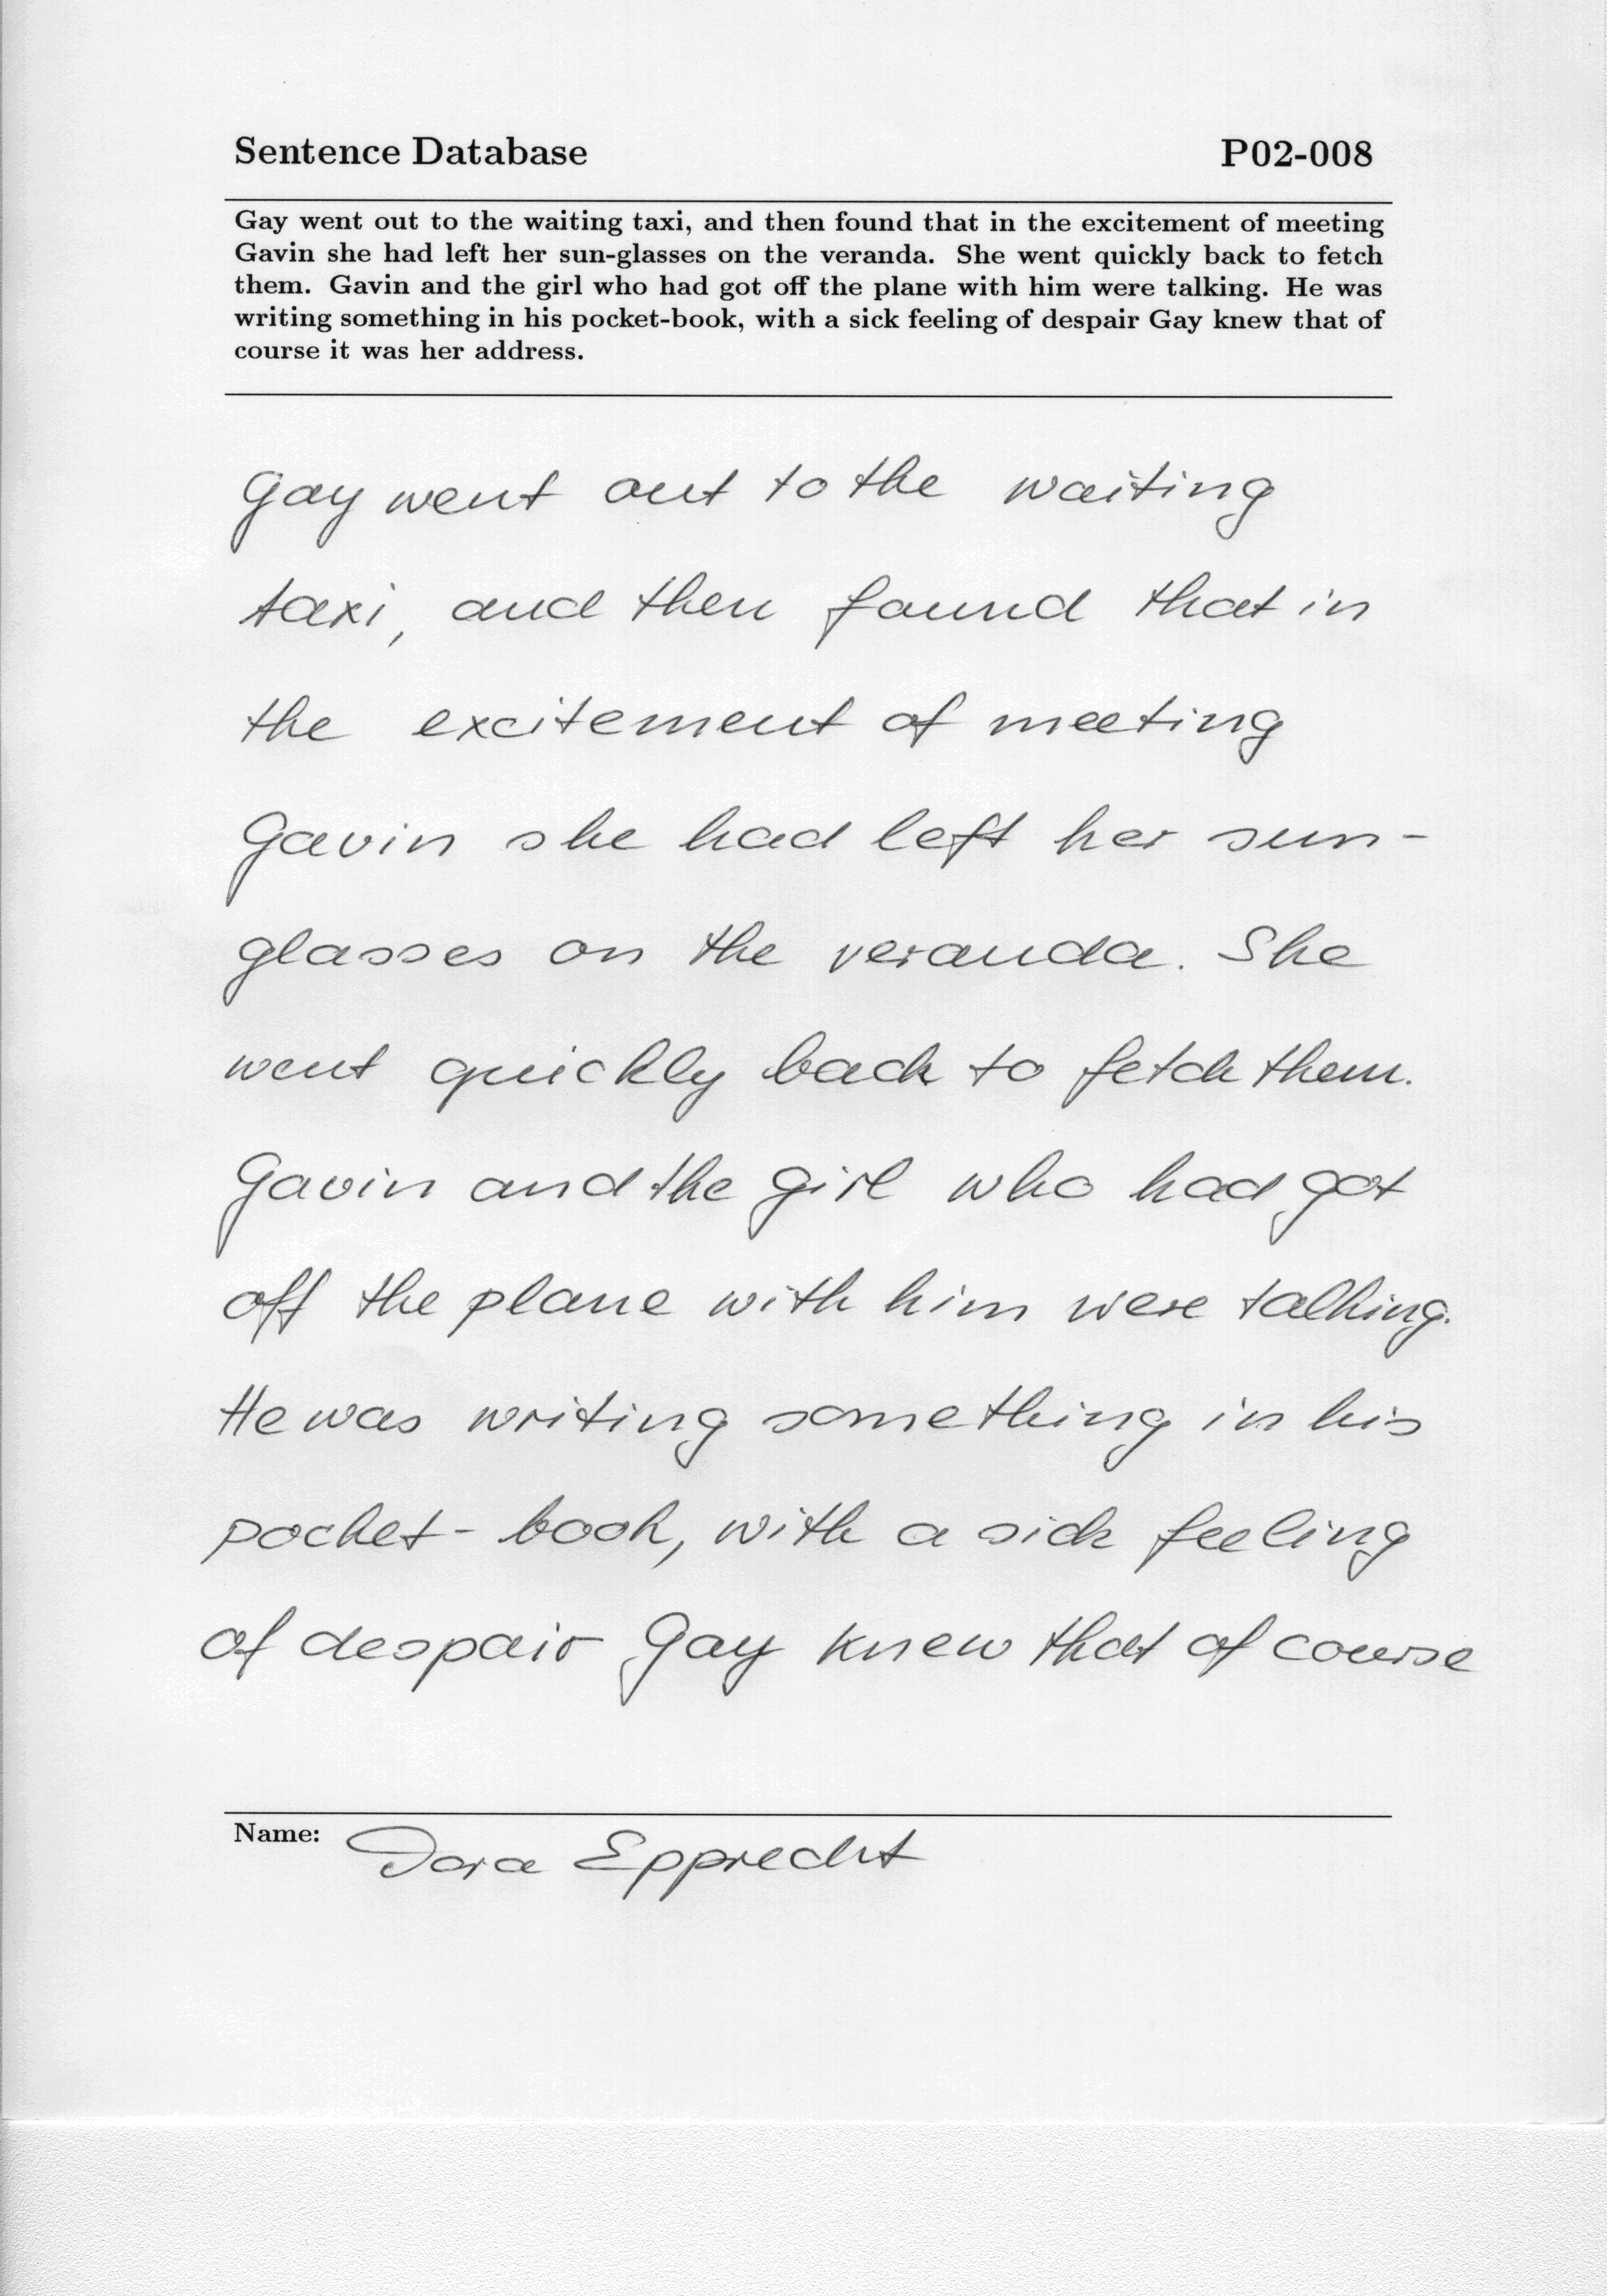 Sentence Database P02-008
Gay went out to the waiting taxi, and then found that in the excitement of meeting
Gavin she had left her sun-glasses on the veranda. She went quickly back to fetch
them. Gavin and the girl who had got off the plane with him were talking. He was
writing something in his pocket-book, with a sick feeling of despair Gay knew that of
course it was her address.
Gay went out to the waiting
taxi, and then found that in
the excitement of meeting
Gavin she had left her sun-
glasses on the veranda. She
went quickly back to fetch them.
Gavin and the girl who had got
off the plane with him were talking.
He was writing something in his
pocket-book, with a sick feeling
of despair Gay knew that of course
Name: Dora Epprecht